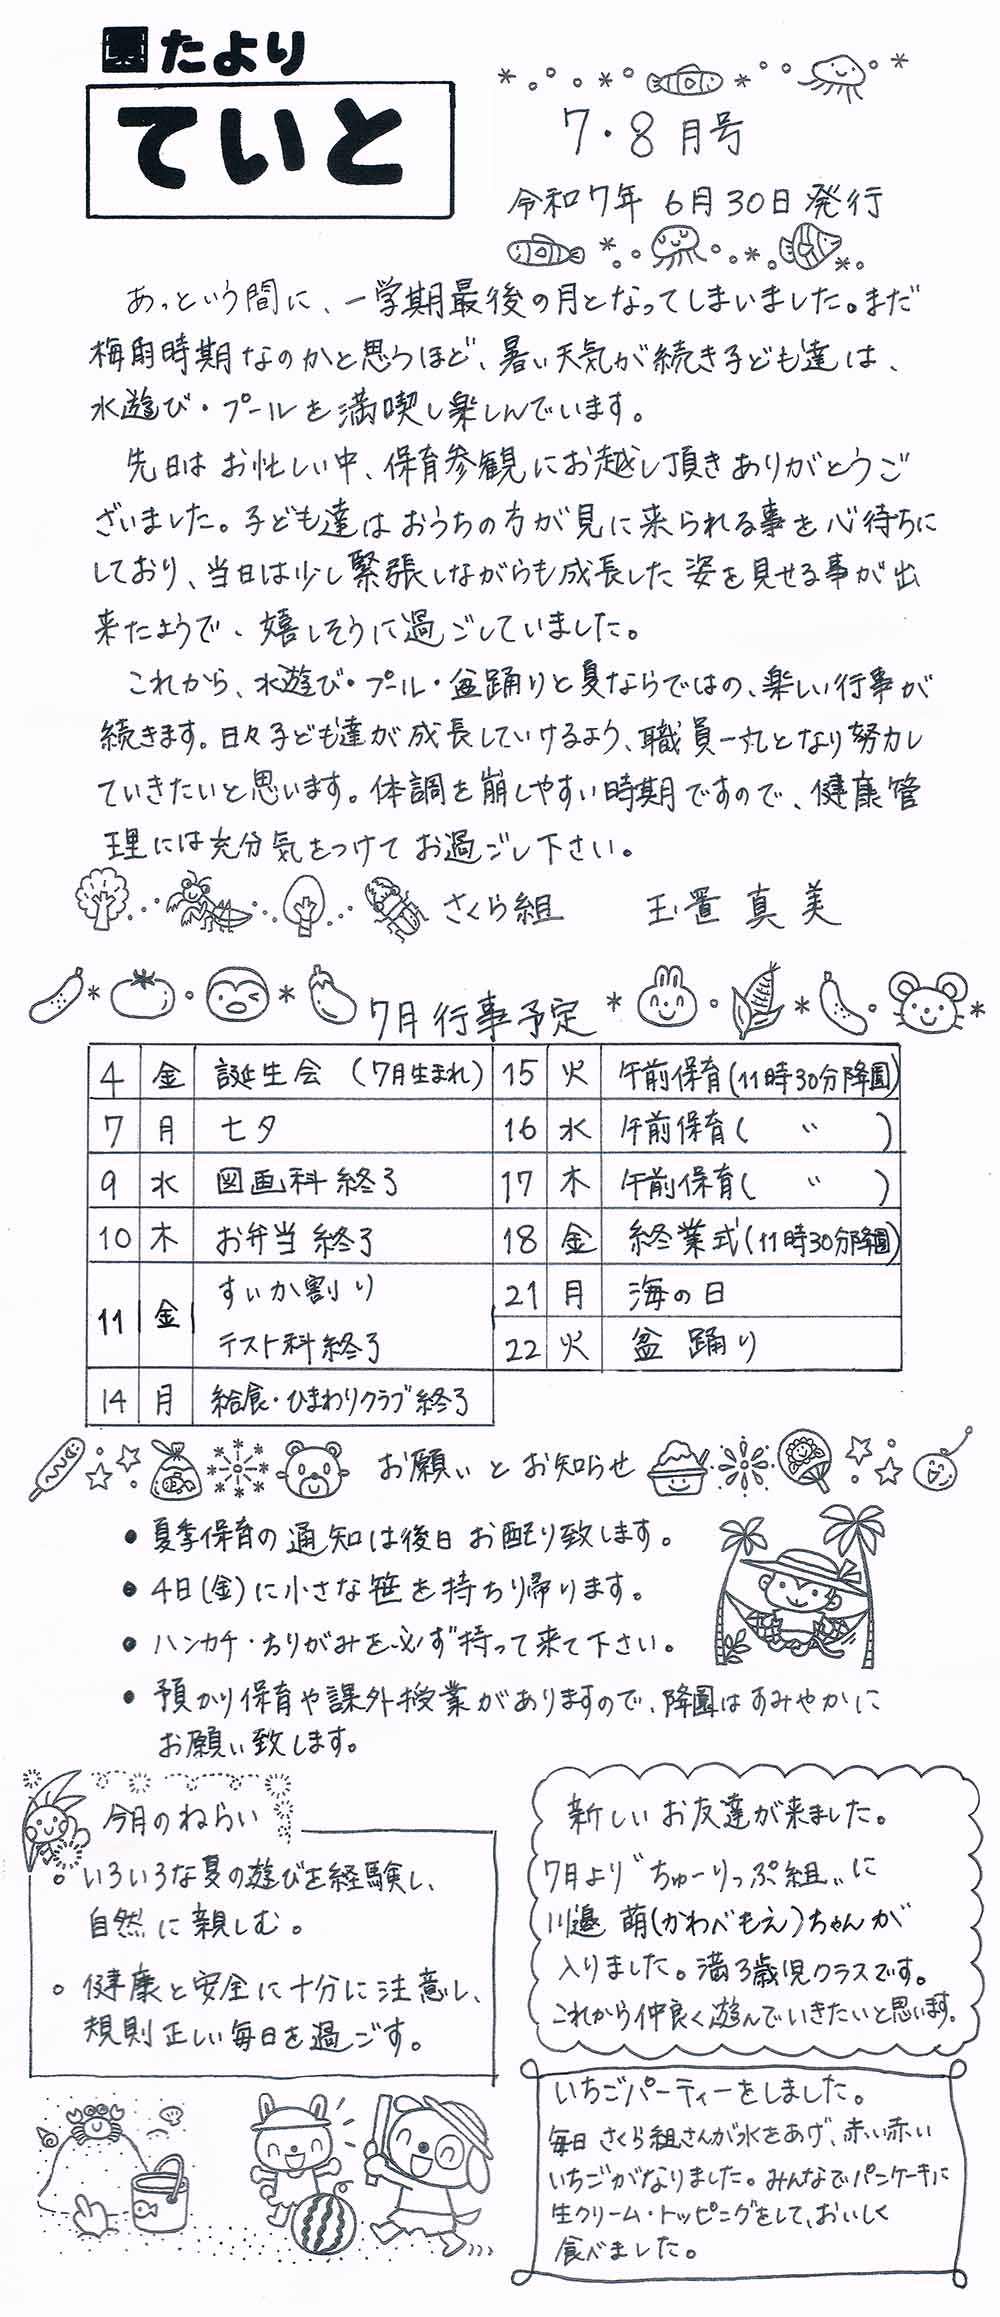 園たより
ていと
7・8月号
令和7年 6月30日発行
あっという間に、一学期最後の月となってしまいました。まだ
梅雨時期なのかと思うほど、暑い天気が続き子ども達は、
水遊び・プールを満喫し楽しんでいます。
先日はお忙しい中、保育参観にお越し頂きありがとうご
ざいました。子ども達はおうちの方が見に来られる事を心待ちに
しており、当日は少し緊張しながらも成長した姿を見せる事が出
来たようで、嬉しそうに過ごしていました。
これから、水遊び・プール・盆踊りと夏ならではの、楽しい行事が
続きます。日々子ども達が成長していけるよう、職員一丸となり努力し
ていきたいと思います。体調を崩しやすい時期ですので、健康管
理には充分気をつけてお過ごし下さい。
さくら組 玉置真美
7月行事予定
4 金 誕生会(7月生まれ)
7 月 七夕
9 水 図画科終了
10 木 お弁当終了
11 金 すいか割り
テスト科終了
14 月 給食・ひまわりクラブ終了
15 火 午前保育(11時30分降園)
16 水 午前保育( 〃 )
17 木 午前保育( 〃 )
18 金 終業式(11時30分降園)
21 月 海の日
22 火 盆踊り
お願いとお知らせ
● 夏季保育の通知は後日お配り致します。
● 4日(金)に小さな笹を持ち帰ります。
● ハンカチ・ちりがみを必ず持って来て下さい。
● 預かり保育や課外授業がありますので、降園はすみやかに
お願い致します。
今月のねらい
○ いろいろな夏の遊びを経験し、
自然に親しむ。
○ 健康と安全に十分に注意し、
規則正しい毎日を過ごす。
新しいお友達が来ました。
7月より〝ちゅーりっぷ組〟に
川邉 萌(かわべもえ)ちゃんが
入りました。満3歳児クラスです。
これから仲良く遊んでいきたいと思います。
いちごパーティーをしました。
毎日さくら組さんが水をあげ、赤い赤い
いちごがなりました。みんなでパンケーキに
生クリーム・トッピングをして、おいしく
食べました。